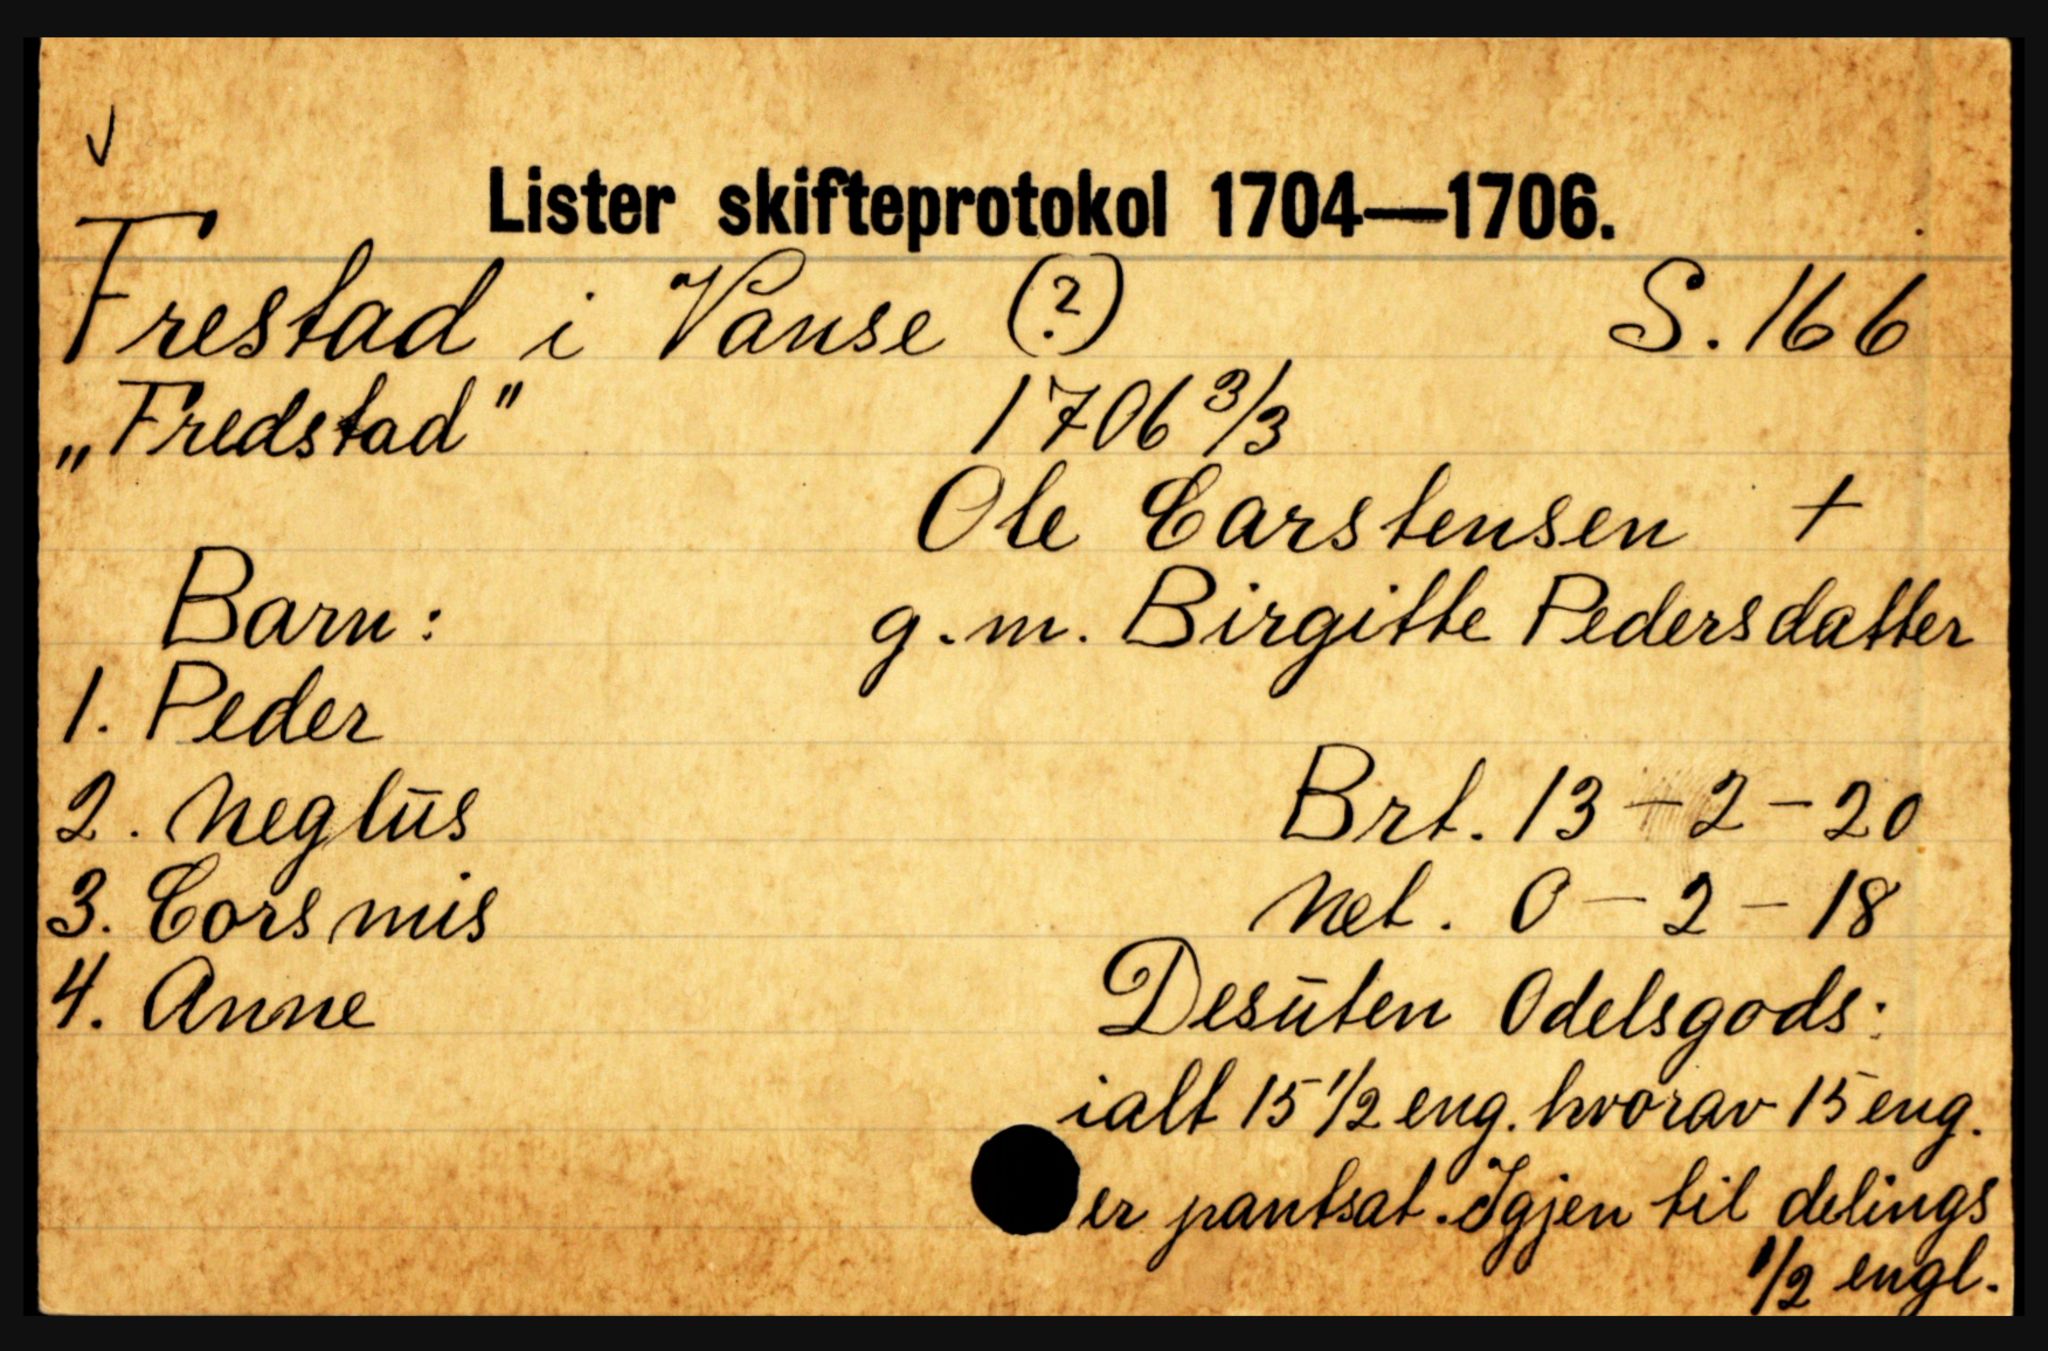 Lister skifteprotokol 1704—1706.
Frestad i Vanse (?) S. 166
„Fredstad" 1706 3/3
Ole Carstensen +
Barn: g.m. Birgitte Pedersdatter
1. Peder
2. Neglūs Brt. 13 - 2 - 20
3. Corsmis Net. 0 - 2 - 18
4. Anne Desūten Odelsgods:
ialt 15 1/2 eng. hvorav 15 eng.
er pantsat. Igjen til delings
1/2 engl.